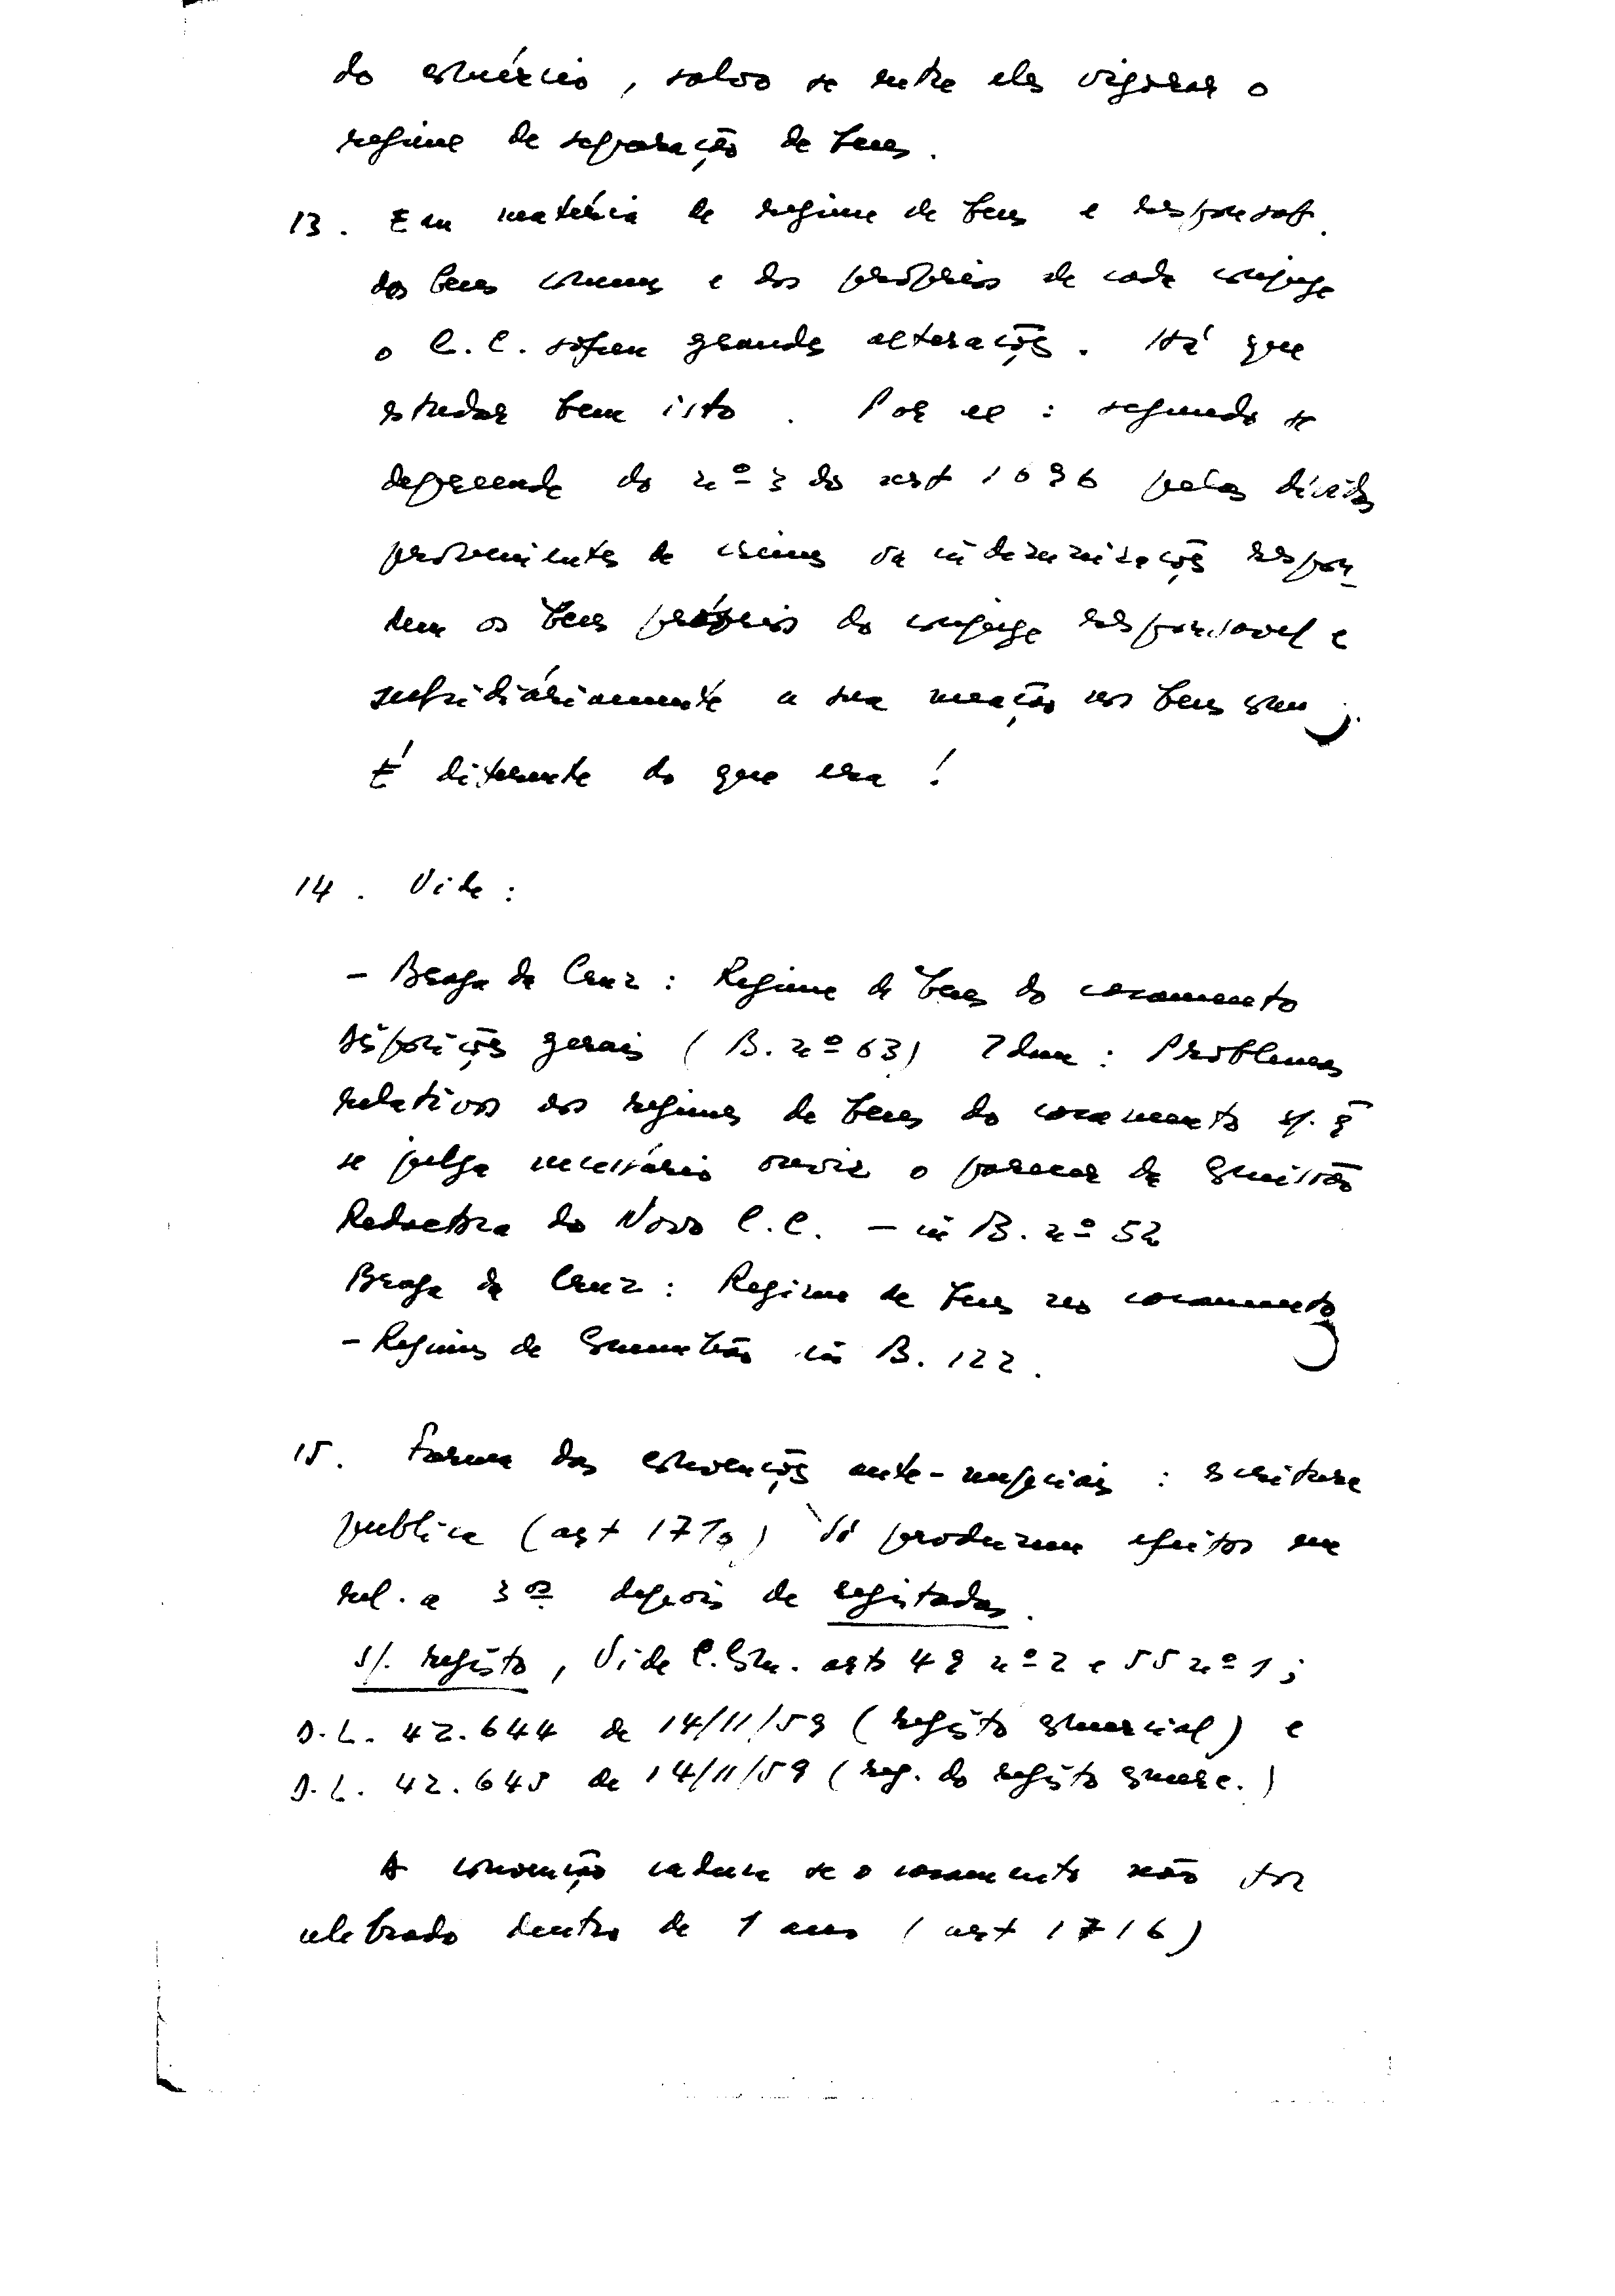 do comércio, salvo se entre eles vigorar o
regime de separação de bens.
13. Em matéria de regime de bens e responsab.
dos bens comuns e dos próprios de cada conjuge
o C.C. sofreu grandes alterações. Há que
estudar bem isto. Por ex: segundo se
depreende do nº 3 do art 1696 pelas dívidas
provenientes de crimes ou indemnizações respon-
dem os bens próprios do conjuge responsavel e
subsidiáriamente a sua meação nos bens comuns.
É diferente do que era!
14. Vide:
- Braga da Cruz: Regime de bens do casamento
disposições gerais (B. nº 63) Idem: Problemas
relativos aos regimes de bens do casamento s/. q̄
se julga necessário ouvir o parecer da Comissão
Redactora do Novo C.C. - in B. nº 52
Braga da Cruz: Regime de bens no casamento
- Regimes de Comunhão in B. 122.
15. Forma das convenções ante-nupciais: escritura
publica (art 1710) Só produzem efeitos em
rel. a 3ºs depois de registadas.
s/. registo, Vide C.Com. arts 49 nº 2 e 55 nº 1;
D.L. 42.644 de 14/11/59 (registo comercial) e
D.L. 42.645 de 14/11/59 (reg. do registo comerc.)
A convenção caduca se o casamento não for
celebrado dentro de 1 ano (art 1716)